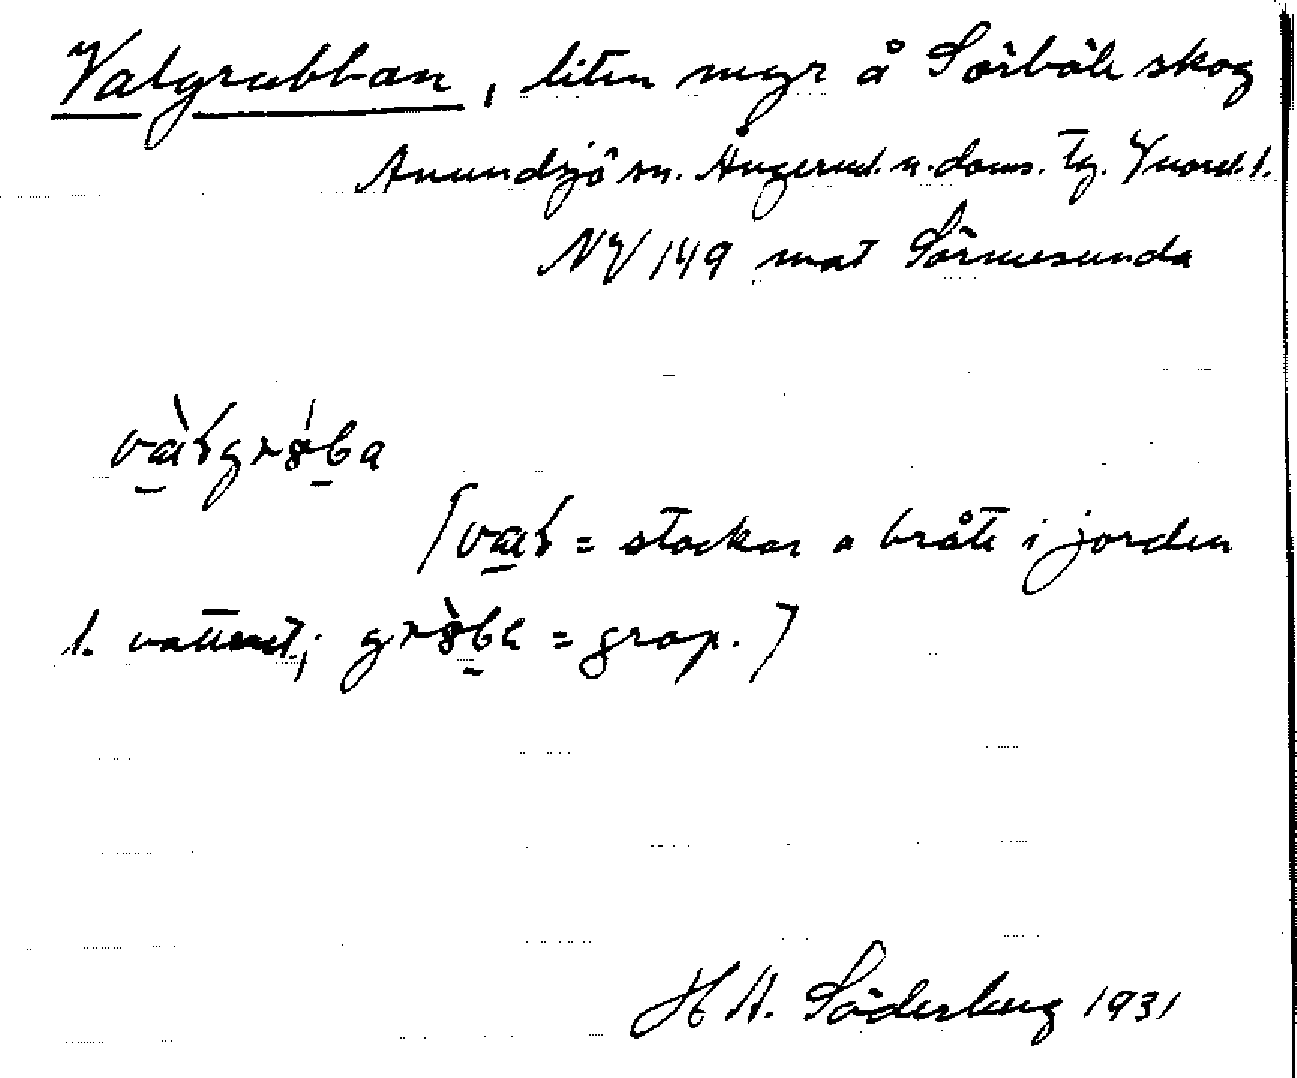 Valgrubban, liten myr å Sörböle skog
Anundsjö sn. Ångerml. n. doms. tg. Vnorrl. l.
NV 149 mot Sörmesunda
va̱ɫgrȣ̱ba
(va̱ɫ = stockar o bråte i jorden
l. vattnet; grȣ̱ba = grop.)
H A. Söderberg 1931